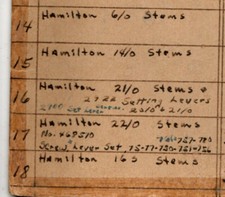 14 Hamilton 6/0 Stems
15 Hamilton 14/0 Stems
16 Hamilton 21/0 Stems &
2722 Setting Levers
17 Hamilton 22/0 Stems
No. 469510
Screw Lever Set
18 Hamilton 16 s Stems